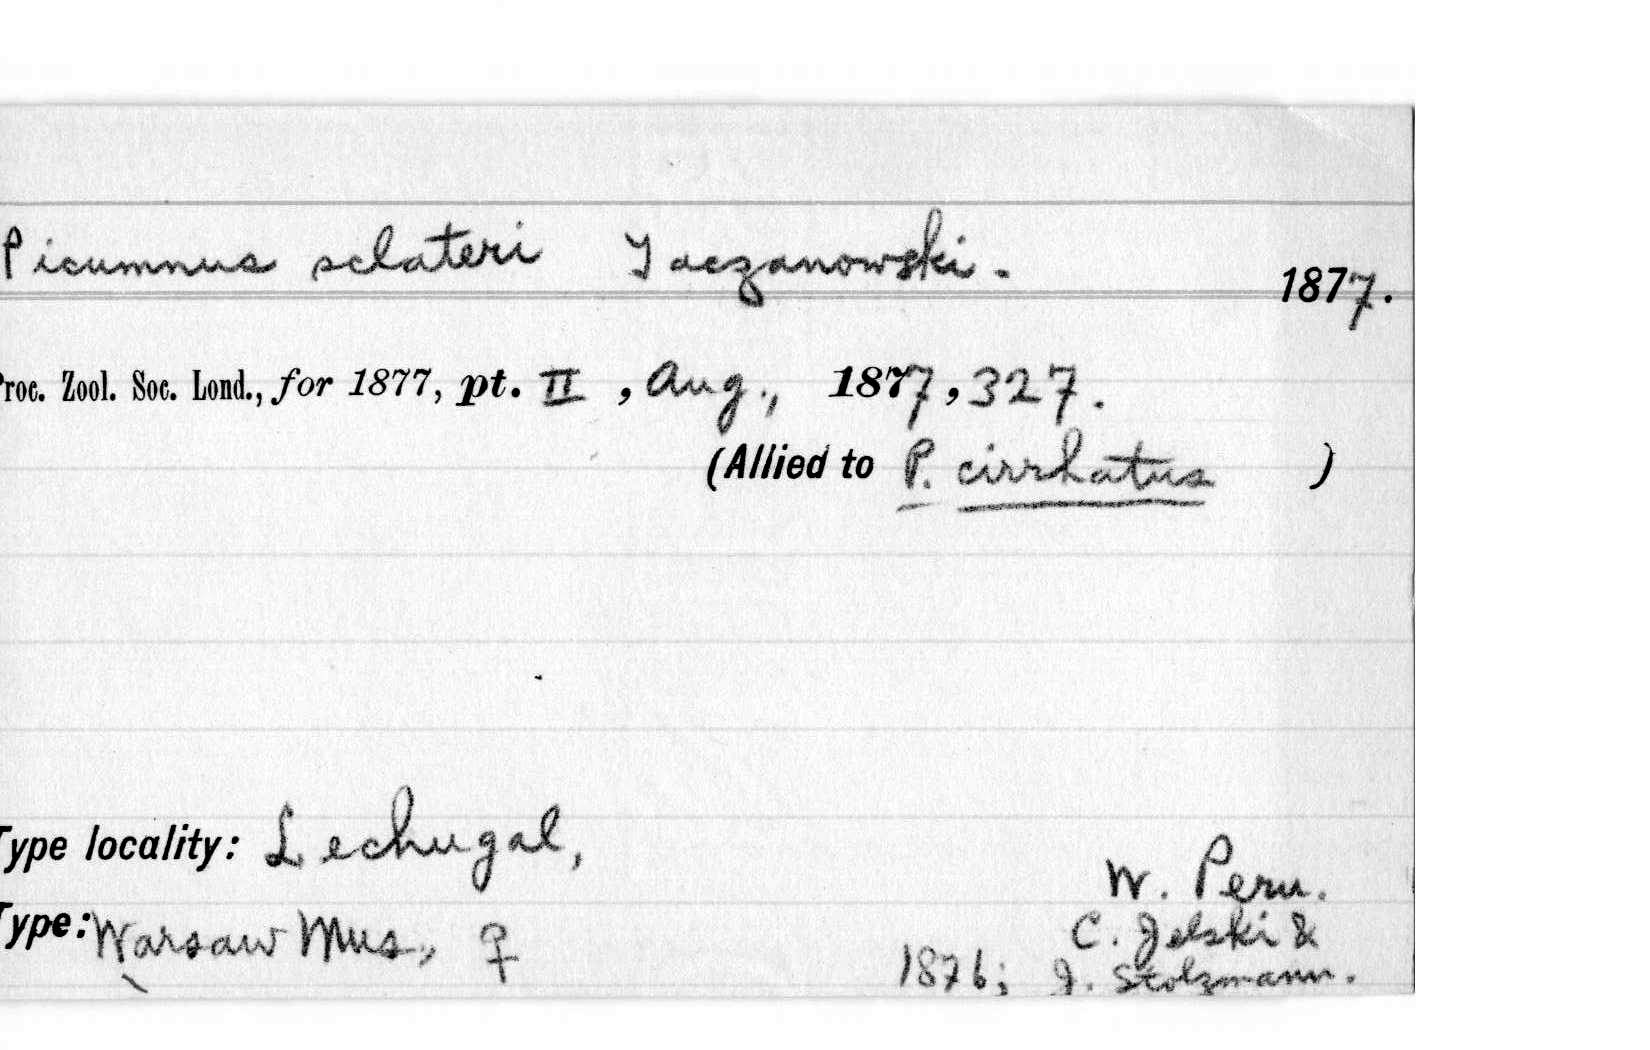 Picumnus sclateri Taczanowski. 1877.
Proc. Zool. Soc. Lond., for 1877, pt. II, Aug., 1877, 327.
(Allied to P. cirrhatus )
Type locality: Lechugal,
W. Peru.
Type: Warsaw Mus., ♀
C. Jelski &
1876; J. Stolzmann.